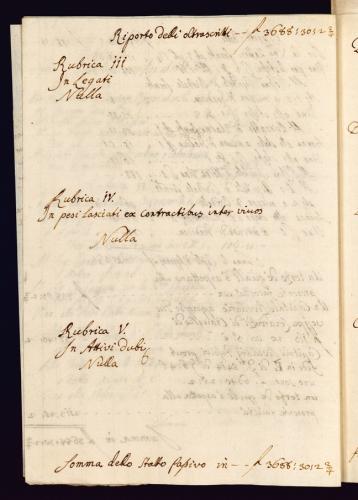 Riporto delli oltrascritti -- f 3688:3012 2/4
Rubrica III
In Legati
Nulla
Rubrica IV.
In pesi lasciati ex contractibus inter vivos
Nulla
Rubrica V.
In Attivi dubij
Nulla
Somma dello Stato passivo in -- f 3688:3012 2/4